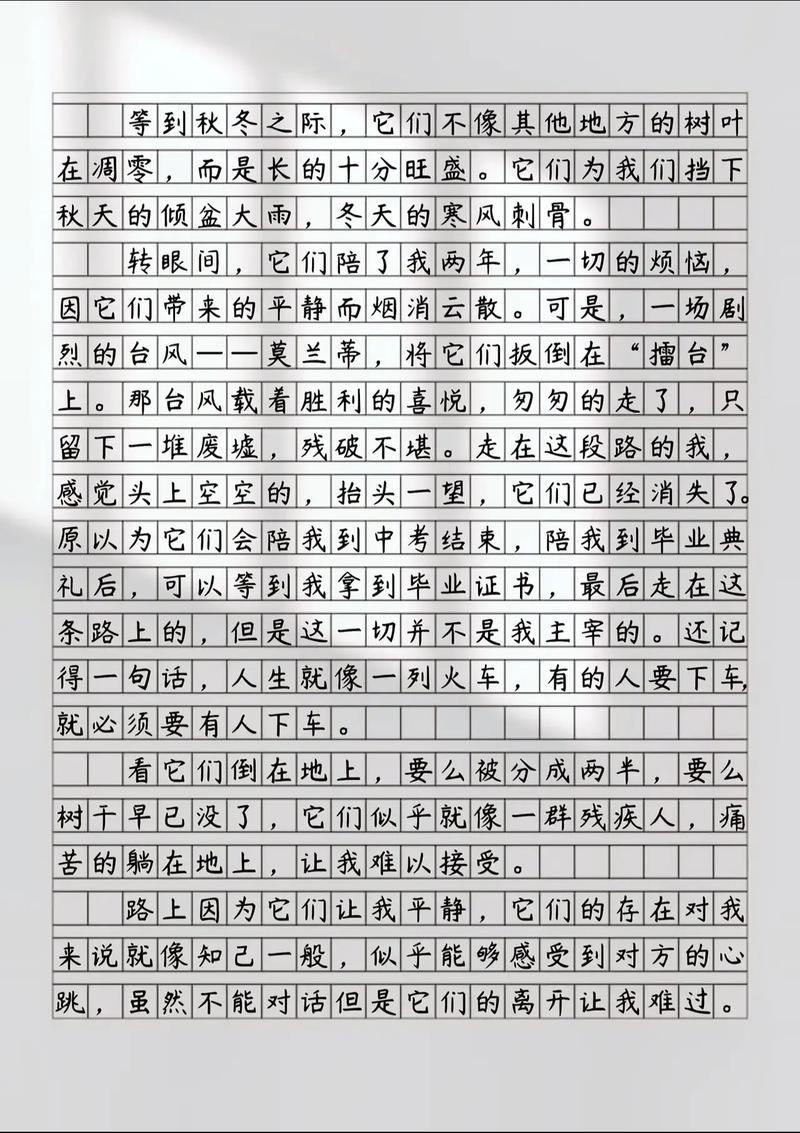 等到秋冬之际，它们不像其他地方的树叶
在凋零，而是长的十分旺盛。它们为我们挡下
秋天的倾盆大雨，冬天的寒风刺骨。
转眼间，它们陪了我两年，一切的烦恼，
因它们带来的平静而烟消云散。可是，一场剧
烈的台风——莫兰蒂，将它们扳倒在“擂台”
上。那台风载着胜利的喜悦，匆匆的走了，只
留下一堆废墟，残破不堪。走在这段路的我，
感觉头上空空的，抬头一望，它们已经消失了。
原以为它们会陪我到中考结束，陪我到毕业典
礼后，可以等到我拿到毕业证书，最后走在这
条路上的，但是这一切并不是我主宰的。还记
得一句话，人生就像一列火车，有的人要下车，
就必须要有人下车。
看它们倒在地上，要么被分成两半，要么
树干早已没了，它们似乎就像一群残疾人，痛
苦的躺在地上，让我难以接受。
路上因为它们让我平静，它们的存在对我
来说就像知己一般，似乎能够感受到对方的心
跳，虽然不能对话但是它们的离开让我难过。